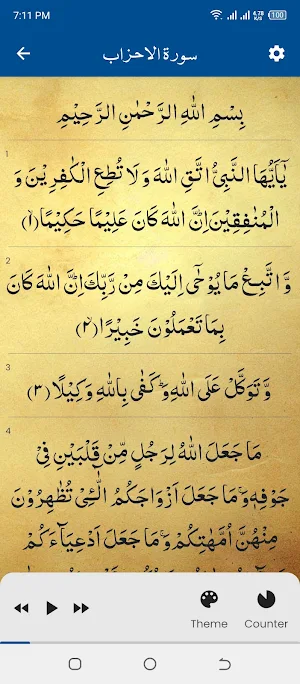 7:11 PM
4.78 K/S
100
سورة الاحزاب
بِسْمِ اللهِ الرَّحْمٰنِ الرَّحِيْمِ
1
يٰۤاَيُّهَا النَّبِيُّ اتَّقِ اللهَ وَلَا تُطِعِ الْكٰفِرِيْنَ وَ
الْمُنٰفِقِيْنَ اِنَّ اللهَ كَانَ عَلِيْمًا حَكِيْمًا ﴿۱﴾
2
وَّاتَّبِعْ مَا يُوْحٰۤى اِلَيْكَ مِنْ رَّبِّكَ اِنَّ اللهَ كَانَ
بِمَا تَعْمَلُوْنَ خَبِيْرًا ﴿۲﴾
3
وَّتَوَكَّلْ عَلَى اللهِ وَكَفٰى بِاللهِ وَكِيْلًا ﴿۳﴾
4
مَا جَعَلَ اللهُ لِرَجُلٍ مِّنْ قَلْبَيْنِ فِيْ
جَوْفِهٖ وَمَا جَعَلَ اَزْوَاجَكُمُ الّٰٓئِ تُظٰهِرُوْنَ
مِنْهُنَّ اُمَّهٰتِكُمْ وَمَا جَعَلَ اَدْعِيَآءَكُمْ
Theme
Counter